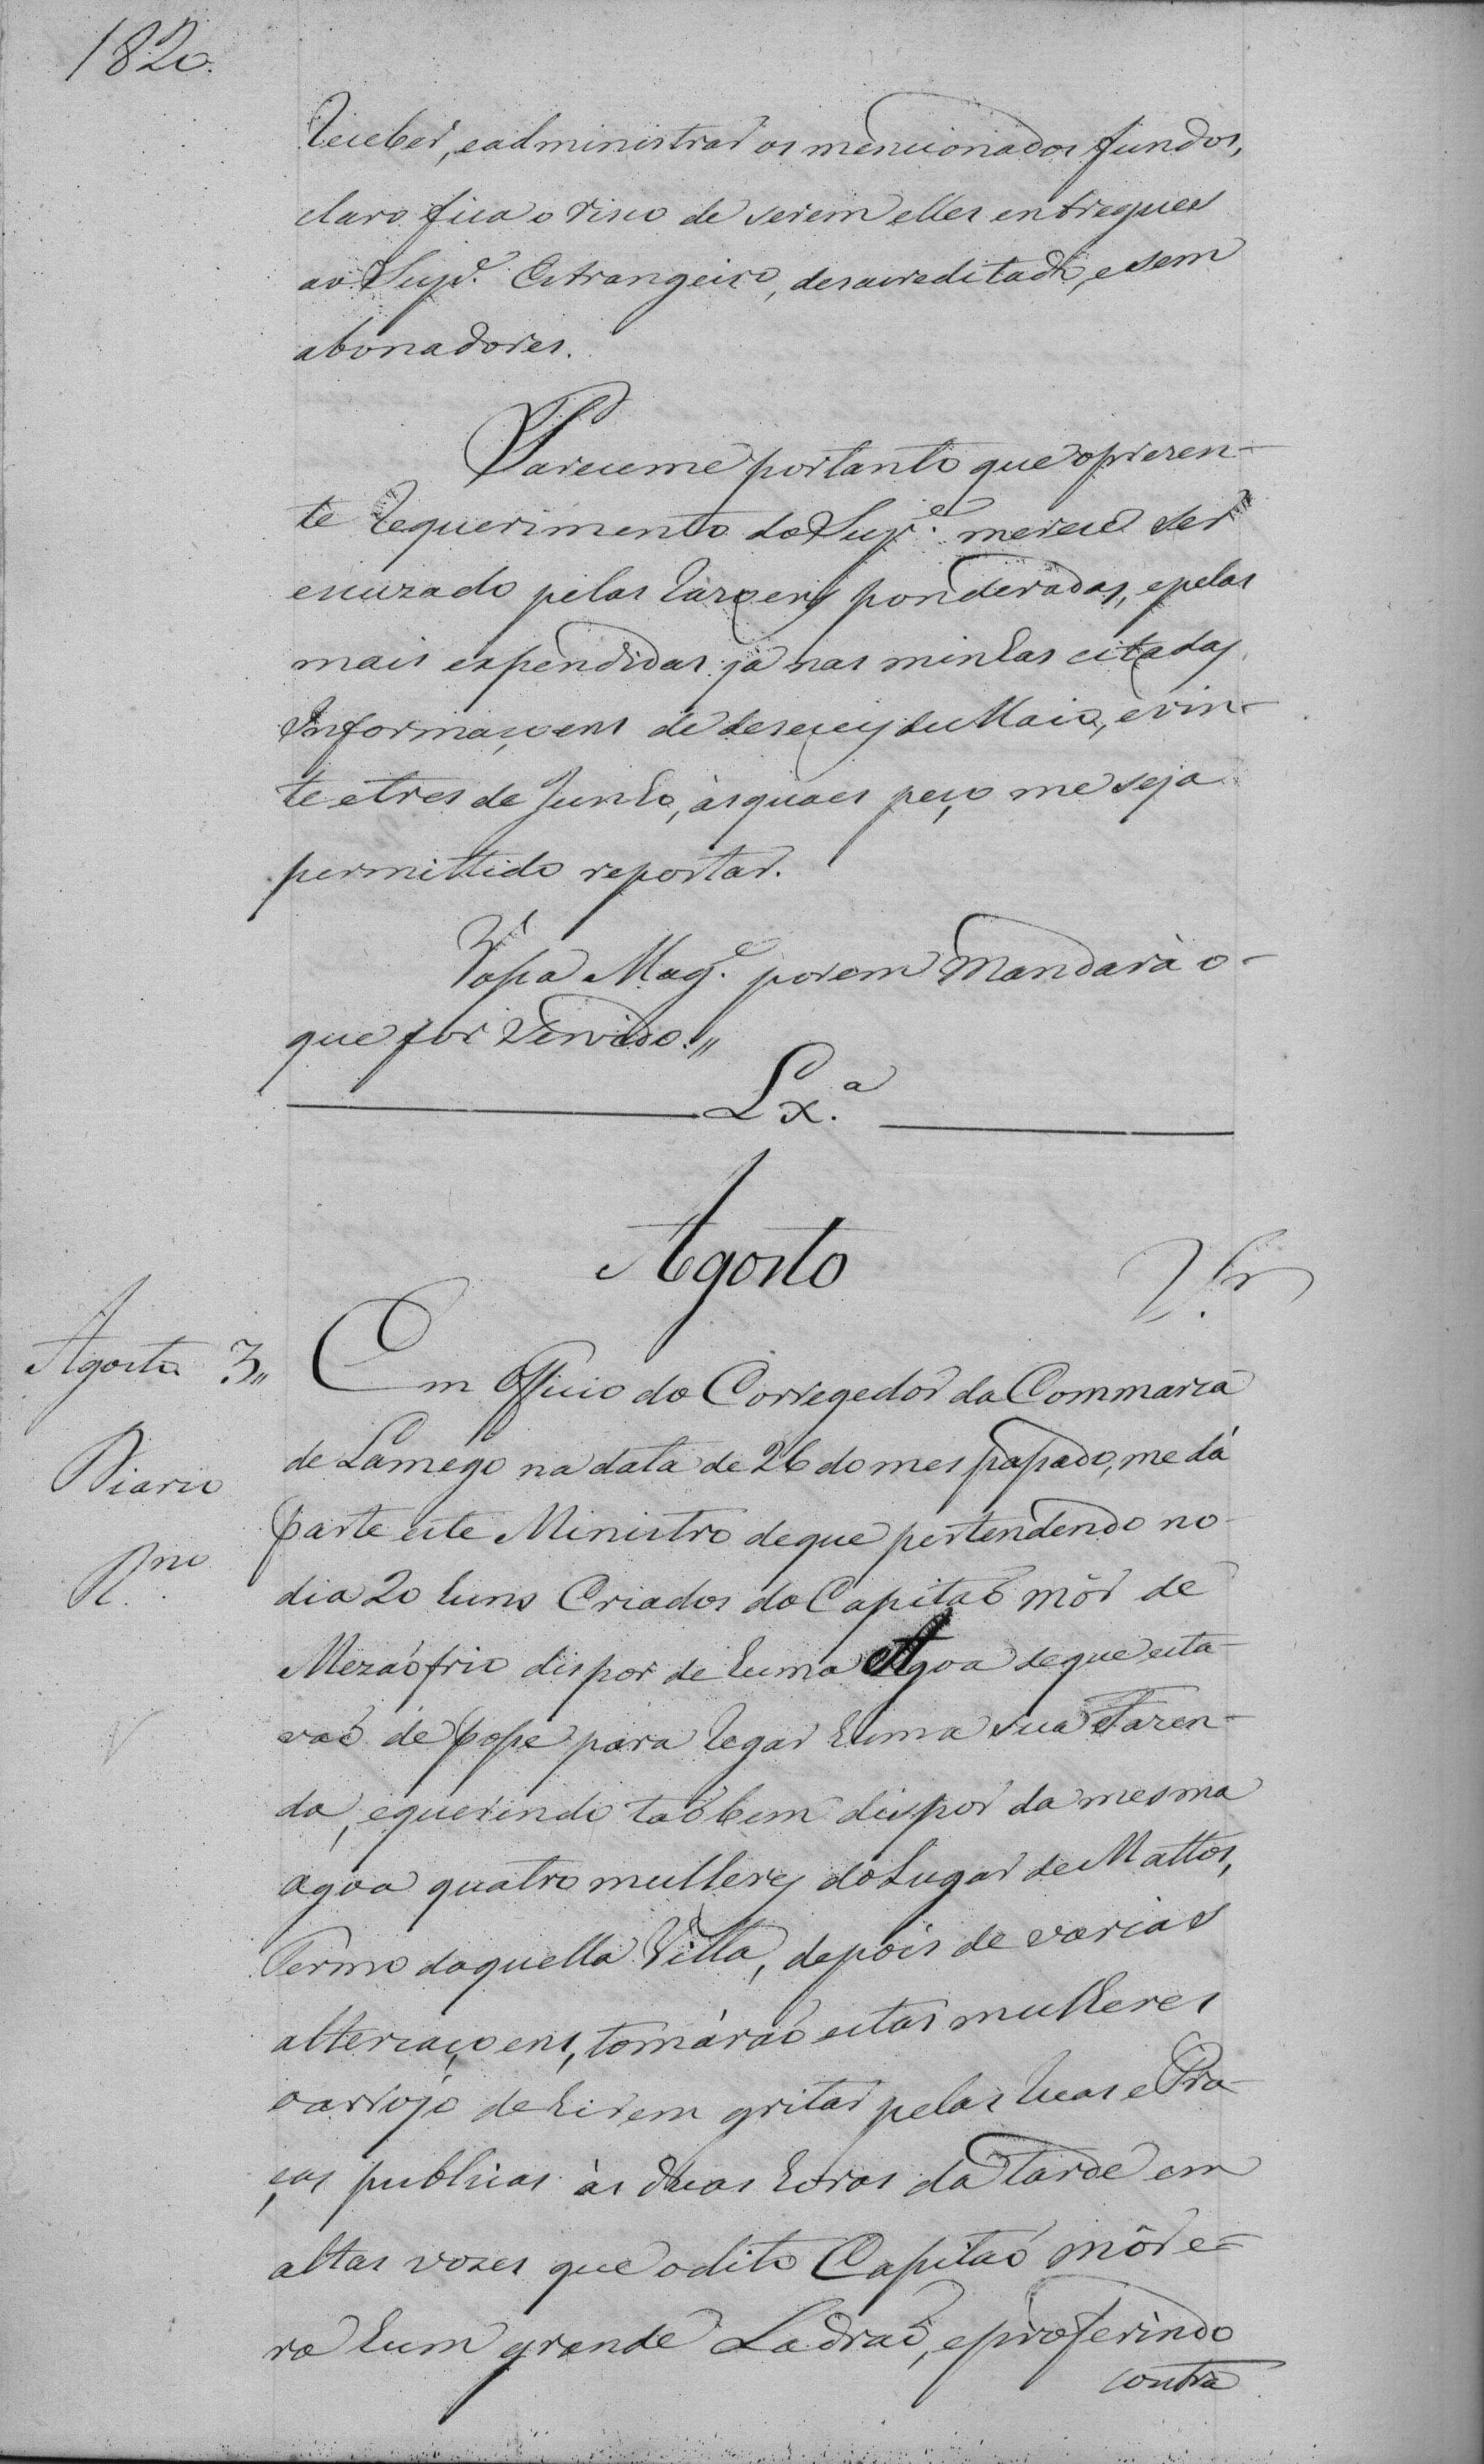 1820.
receber, e administrar os mencionados fundos,
claro fica o risco de serem elles entregues
ao Supe. Estrangeiro, desacreditado, e sem
abonadores.
Pareceme portanto que o prezen-
te requerimento do Supe. merece ser
escuzado pelas razoens ponderadas, e pelas
mais expendidas já nas minhas citadas
Informaçoens de deseceis de Maio, e vin-
te e tres de Junho, ás quaes peço me seja
permittido reportar.
Vossa Mage. porem Mandará o-
que for Servido.,,
Lxa.
Agosto
Agosto 3,,
Em Officio do Corregedor da Commarca
de Lamego na data de 26 do mes passado, me dá
Diario
parte este Ministro de que pertendendo no
Rmo.
dia 20 huns Criados do Capitaõ mór de
Mezaõfrio dispor de huma Agoa de que esta-
vaõ de posse para regar huma sua Fazen-
da, e querendo taõbem dispor da mesma
agoa quatro mulheres do Lugar de Mattos,
Termo daquella Villa, depois de varias
altercaçoens, tomáraõ estas mulheres
o arrojo de hirem gritar pelas ruas e Pra-
ças publicas ás duas horas da tarde em
altas vozes que o dito Capitaõ mór e-
ra hum grande Ladraõ, e proferindo
contra